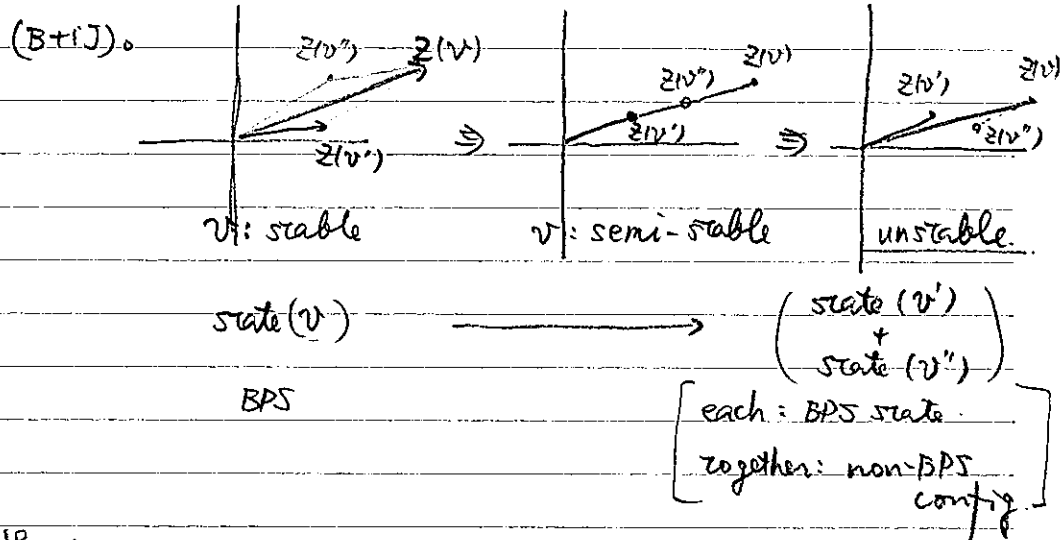 (B+iJ)。
Z(v'') Z(v) Z(v'') Z(v) Z(v') Z(v)
Z(v') ⇒ Z(v') ⇒ Z(v'')
v: stable v: semi-stable unstable.
state (v) ⟶ ( state (v')
+
state (v'') )
BPS
[ each: BPS state.
together: non-BPS
config. ]